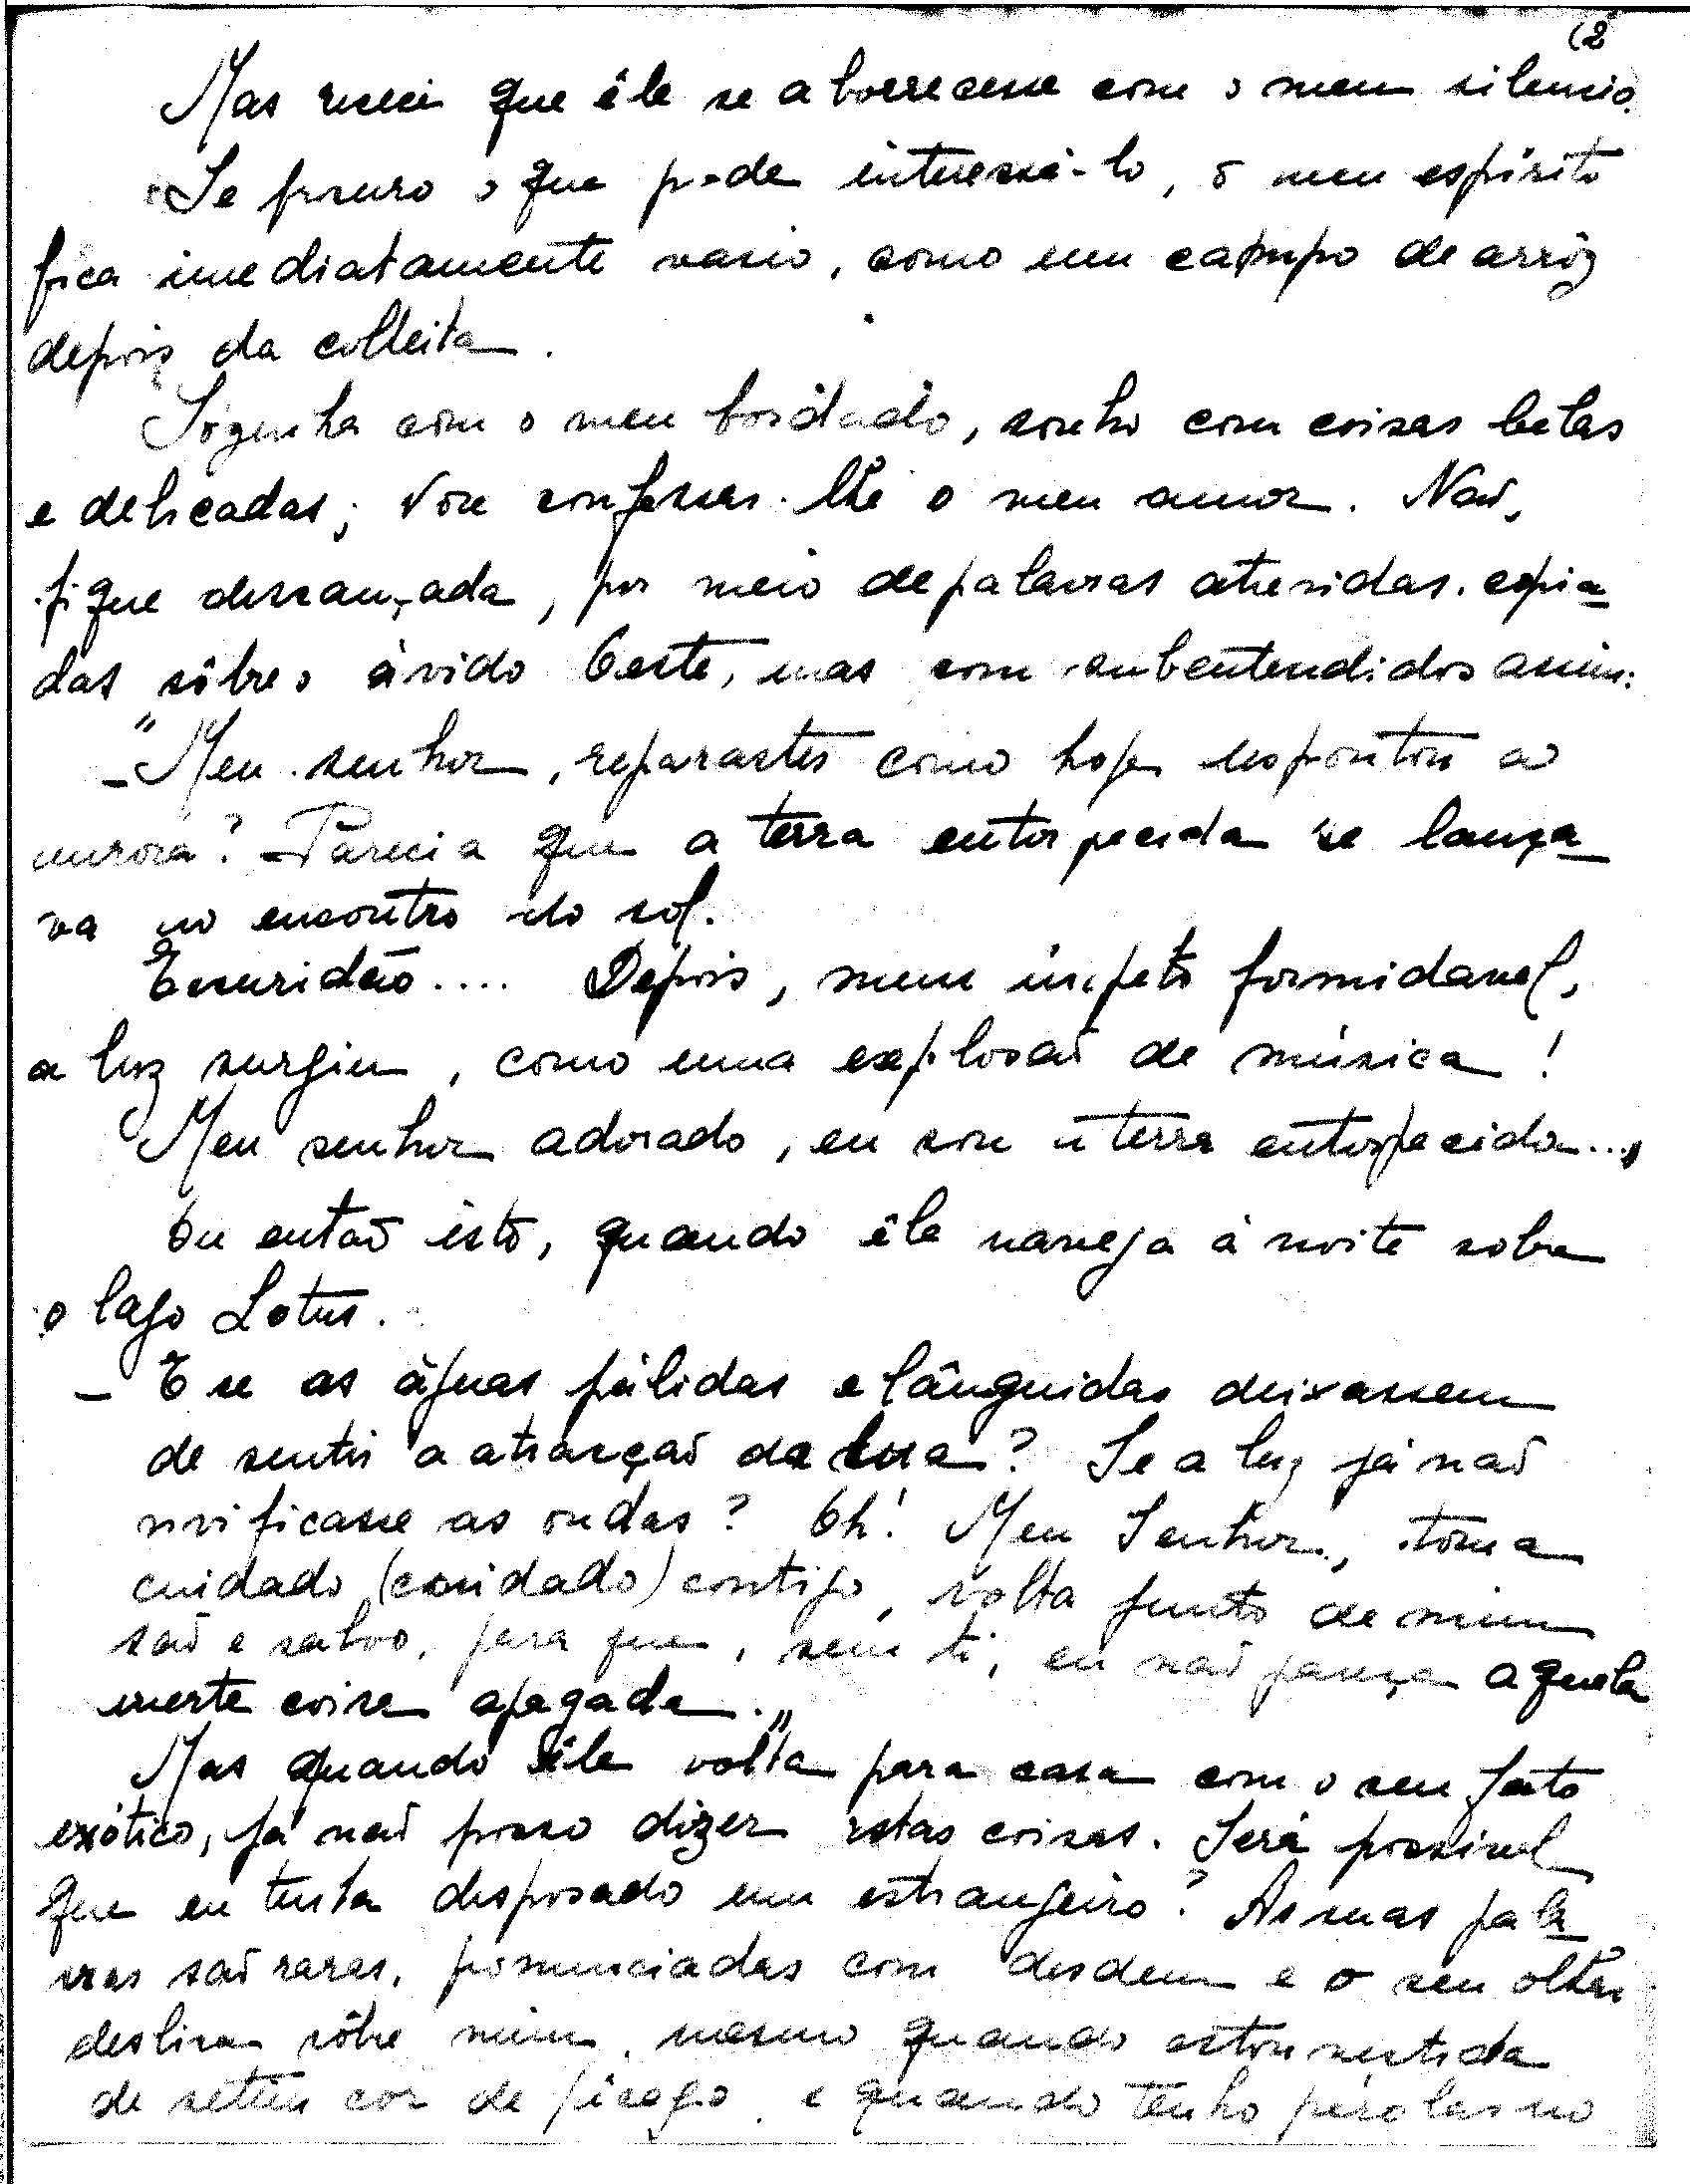 (2
Mas receei que êle se aborrecesse com o meu silencio.
Se procuro o que pode interessá-lo, o meu espírito
fica imediatamente vasio, como um campo de arrôz
depois da colheita.
Sòzinha com o meu bordado, sonho com coisas belas
e delicadas; vou confessar-lhe o meu amor. Não,
fique descançada, por meio de palavras atrevidas. copia-
das sôbre o ávido Oeste, mas com subentendidos assim:
"
- Meu senhor, reparastes como hoje despontou a
aurora? - Parecia que a terra entorpecida se lança-
va ao encontro do sol.
Escuridão.... Depois, num impeto formidavel,
a luz surgiu, como uma explosão de música!
Meu senhor adorado, eu sou a terra entorpecida...,
Ou então isto, quando êle navega à noite sobre
o lago Lotus.
- E se as águas pálidas e lânguidas deixassem
de sentir a atracção da lua? Se a luz já não
vivificasse as ondas? Oh! Meu Senhor, toma
cuidado (cuidado) contigo, volta junto de mim
são e salvo, para que, sem ti, eu não pareça aquela
inerte coisa apagada."
Mas quando êle volta para casa com o seu fato
exótico, já não posso dizer estas coisas. Será possivel
que eu tenha desposado um estrangeiro? As suas pala-
vras são raras, pronunciadas com desdem e o seu olhar
deslisa sôbre mim, mesmo quando estou vestida
de setim cor de pêcego, e quando tenho pérolas no